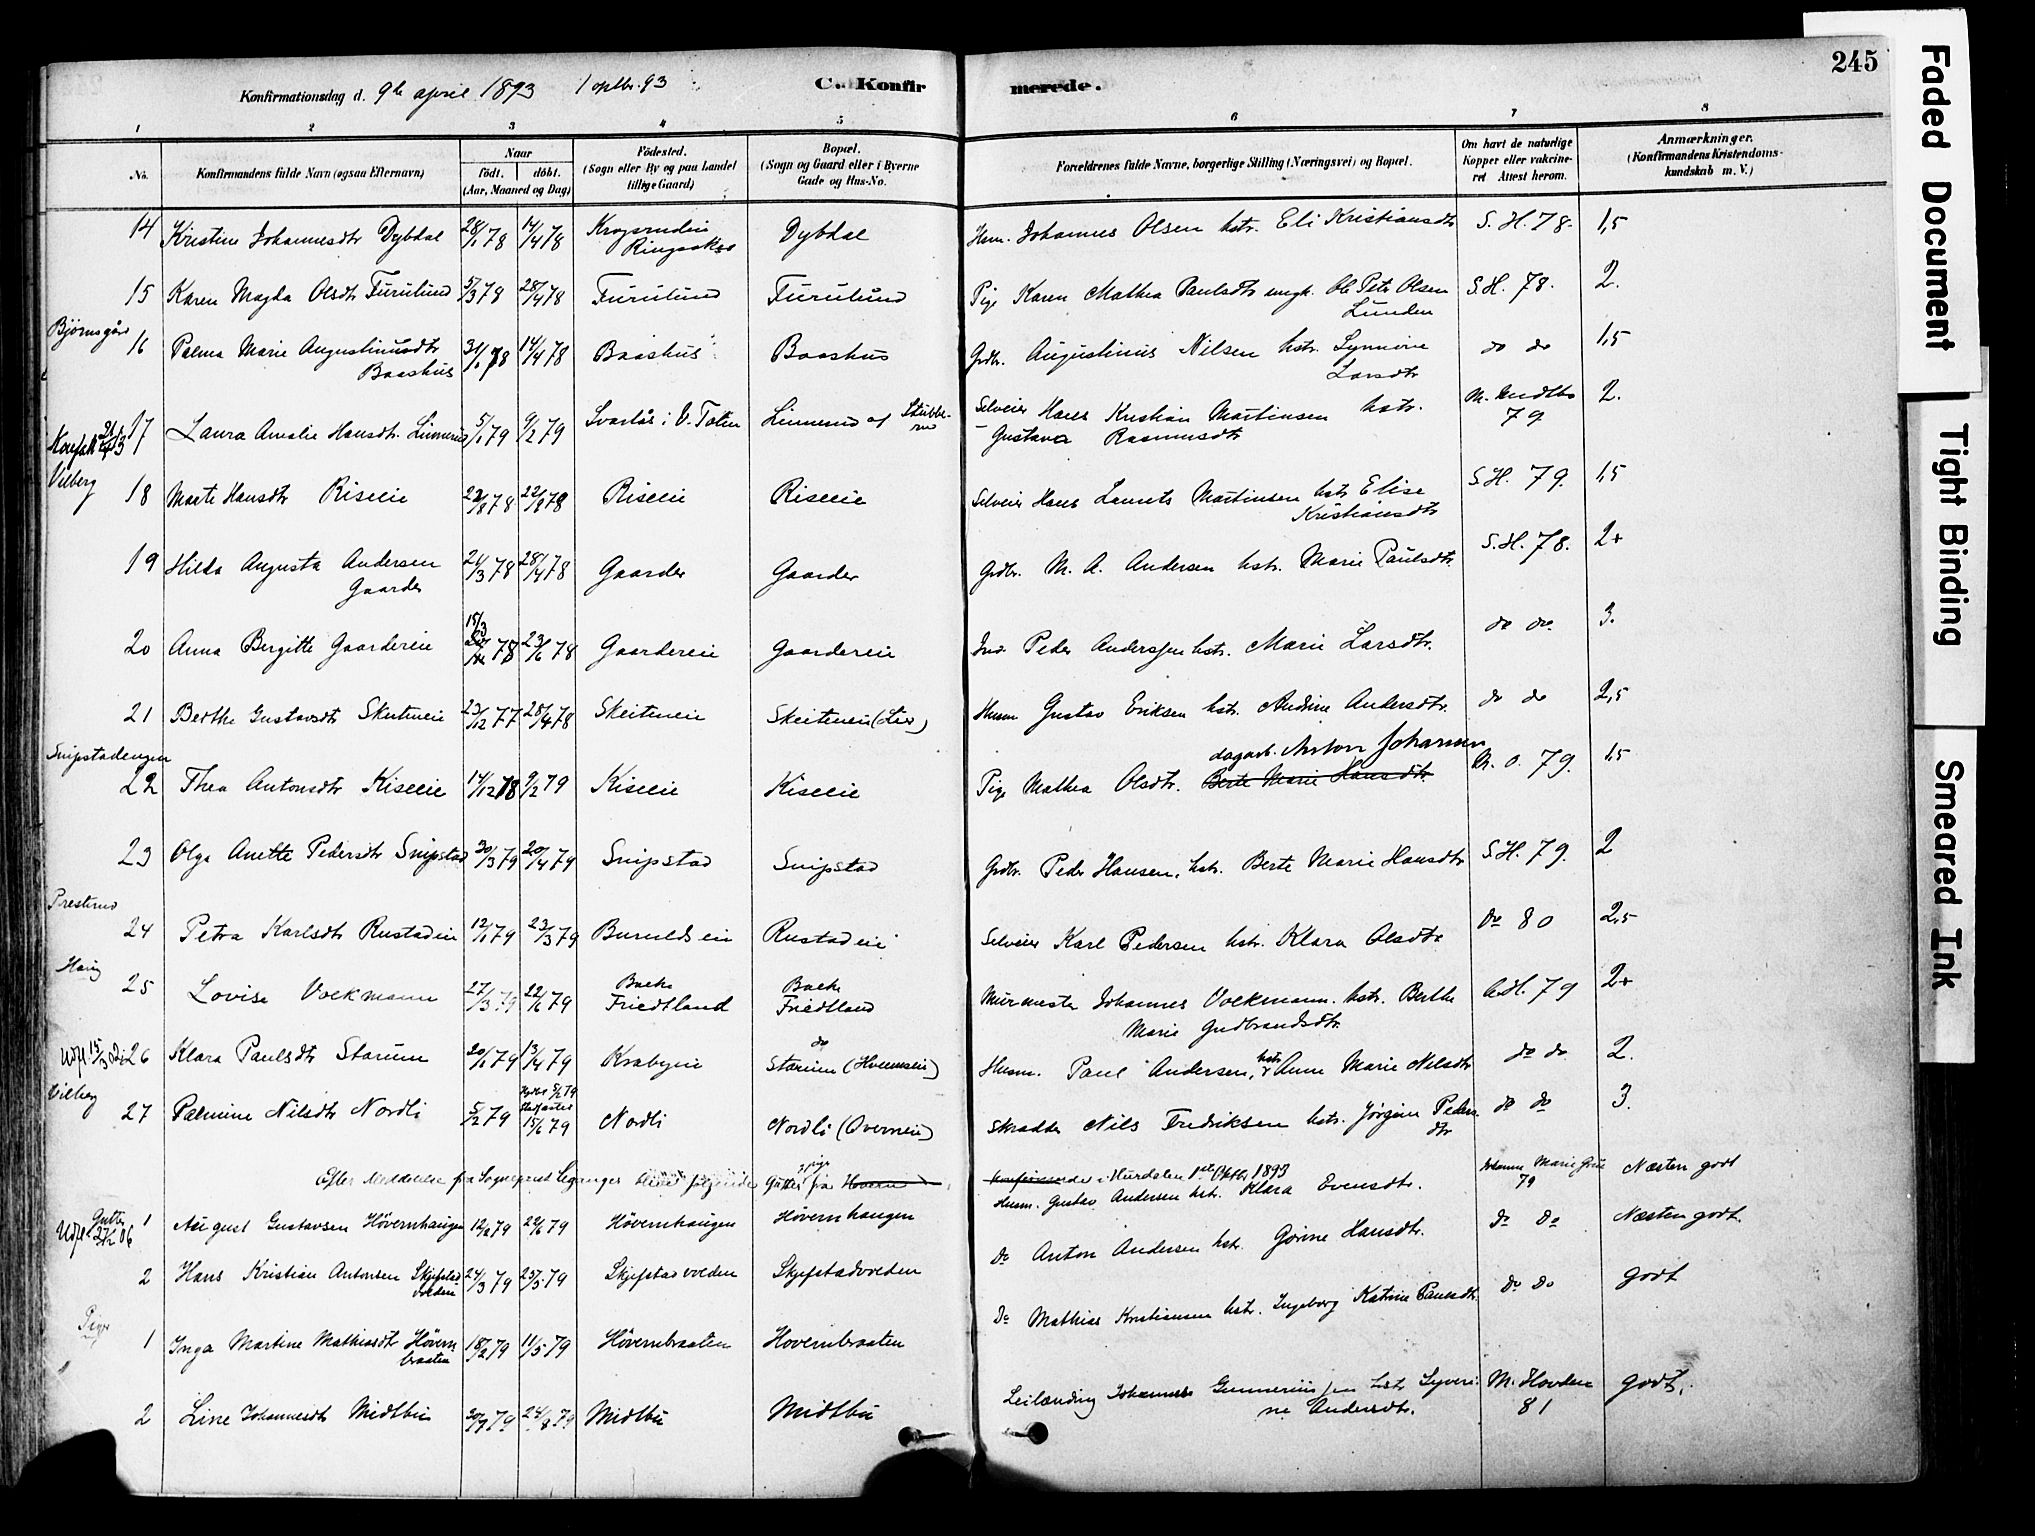 245
Konfirmationsdag d. 9de april 1893 1 oktbr. 93 C. Konfirmerede.
1 2 3 4 5 6 7 8
No.
Konfirmandens fulde Navn (ogsaa Efternavn)
Naar
född. döbt.
(Aar, Maaned og Dag)
Födested.
(Sogn eller By og paa Landet tillige Gaard)
Bopæl.
(Sogn og Gaard eller i Byerne Gade og Hus-No.
Forældrenes fulde Navne, borgerlige Stilling (Næringsvei) og Bopæl.
Om havt de naturlige Kopper eller vakcineret Attest herom.
Anmærkninger.
(Konfirmandens Kristendomskundskab m. V.)
14 Kristine Johannesdtr Dybdal 28/1 78 14/4 78 Ringsaker Dybdal Husm. Johannes Olsen hstr. Eli Kristiansdtr S. H. 78. 1,5
15 Karen Magda Olsdtr Furulund 5/3 78 28/4 78 Furulund Furulund Pige Karen Mathea Paulsdtr ungk. Ole Petr Olsen Lunden S. H. 78. 2.
16 Palma Marie Augustinusdtr Baashus 31/1 78 14/4 78 Baashus Baashus Grdbr. Augustinus Nilsen hstr. Synnöve Larsdtr do do 1,5
17 Laura Amalie Hansdtr. Linnerud 5/1 79 9/2 79 Svartås i V. Toten Linnerud af Stubberud Selveier Hans Kristian Martinsen hstr. Gustava Rasmusdtr 79 2.
Vilberg
18 Marte Hansdtr Riseeie 22/8 78 Riseeie Riseeie Selveier Hans Laurits Martinsen hstr Elise Kristiansdtr S. H. 79 1,5
19 Hilda Augusta Andersen Gaarder 24/3 78 28/4 78 Gaarder Gaarder Grdbr. M. A. Andersen hstr. Marie Paulsdtr. S. H. 78. 2+
20 Anna Bergitte Gaardereie 15/3 78 23/6 78 Gaardereie Gaardereie Ind. Peder Anderssen hstr. Marie Larsdtr. do do. 3.
21 Berthe Gustavsdtr Skeitneie 23/12 77 28/4 78 Skeitneie Skeitneie (Lier) Husm Gustav Eriksen hstr. Andrine Andersdtr. do do 2,5
Snipstadengen
22 Thea Antonsdtr Kiseeie 14/12 78 9/2 79 Kiseeie Kiseeie Pige Mathea Olsdtr. dagarb. Anton Johansen Berte Marie Hansdtr. M. O. 79. 1,5
23 Olga Anette Pedersdtr Snipstad 30/3 79 20/4 79 Snipstad Snipstad Grdbr. Peder Hansen, hstr. Berte Marie Hansdtr S. H. 79. 2
Presterud
24 Petra Karlsdtr Rustadeie 12/1 79 23/3 79 Rustadeie Selveier Karl Pedersen hstr. Klara Olsdtr Do 80 2,5
25 Lovise Volkmann 27/3 79 22/6 79 Friedtland Friedtland Murmester Johannes Volkmann. hstr. Berthe Marie Gudbrandsdtr. 79 2+
26 Klara Paulsdtr Starum 20/1 79 13/4 79 Krabyeie do Starum (Hveemseie) Husm. Paul Andersen, hstr Anne Marie Nilsdtr do do 2.
Vilberg
27 Palmine Nilsdtr Nordli 5/2 79 15/6 79 Nordli Nordli (Overneie) Skrædder Nils Fredriksen hstr. Jörgine Pedersdtr do do 3.
Efter Meddelelse fra Sogneprest Piger Gutter fra Hovern konfirmerede i Hurdalen 1ste Oktbr. 1893
Gutter
1 August Gustavsen Hövernhaugen 12/2 79 22/6 79 Hövernhaugen Hövernhaugen Husm. Gustav Andersen hstr. Klara Evensdtr. Johanne Marie Grue 79 Næsten godt
2 Hans Kristian Antonsen Skjefstadvolden 24/3 79 25/5 79 Skjefstadvolden Skjefstadvolden Do Anton Andersen hstr. Gorine Hansdtr. Do Do Næsten godt
Piger
1 Inga Martine Mathiasdtr Hövernbraaten 18/2 79 11/5 79 Hövernbraaten Hovernbraaten Do Mathias Kristiansen hstr. Ingeborg Katrine Paulsdtr. Do Do godt
2 Line Johannesdtr Midtbu 24/8 79 Midtbu Midtbu Leilænding Johannes Gunneriussen hstr Syverine Andersdtr. M. Hovden 81 godt.
Faded Document
Tight Binding
Smeared Ink